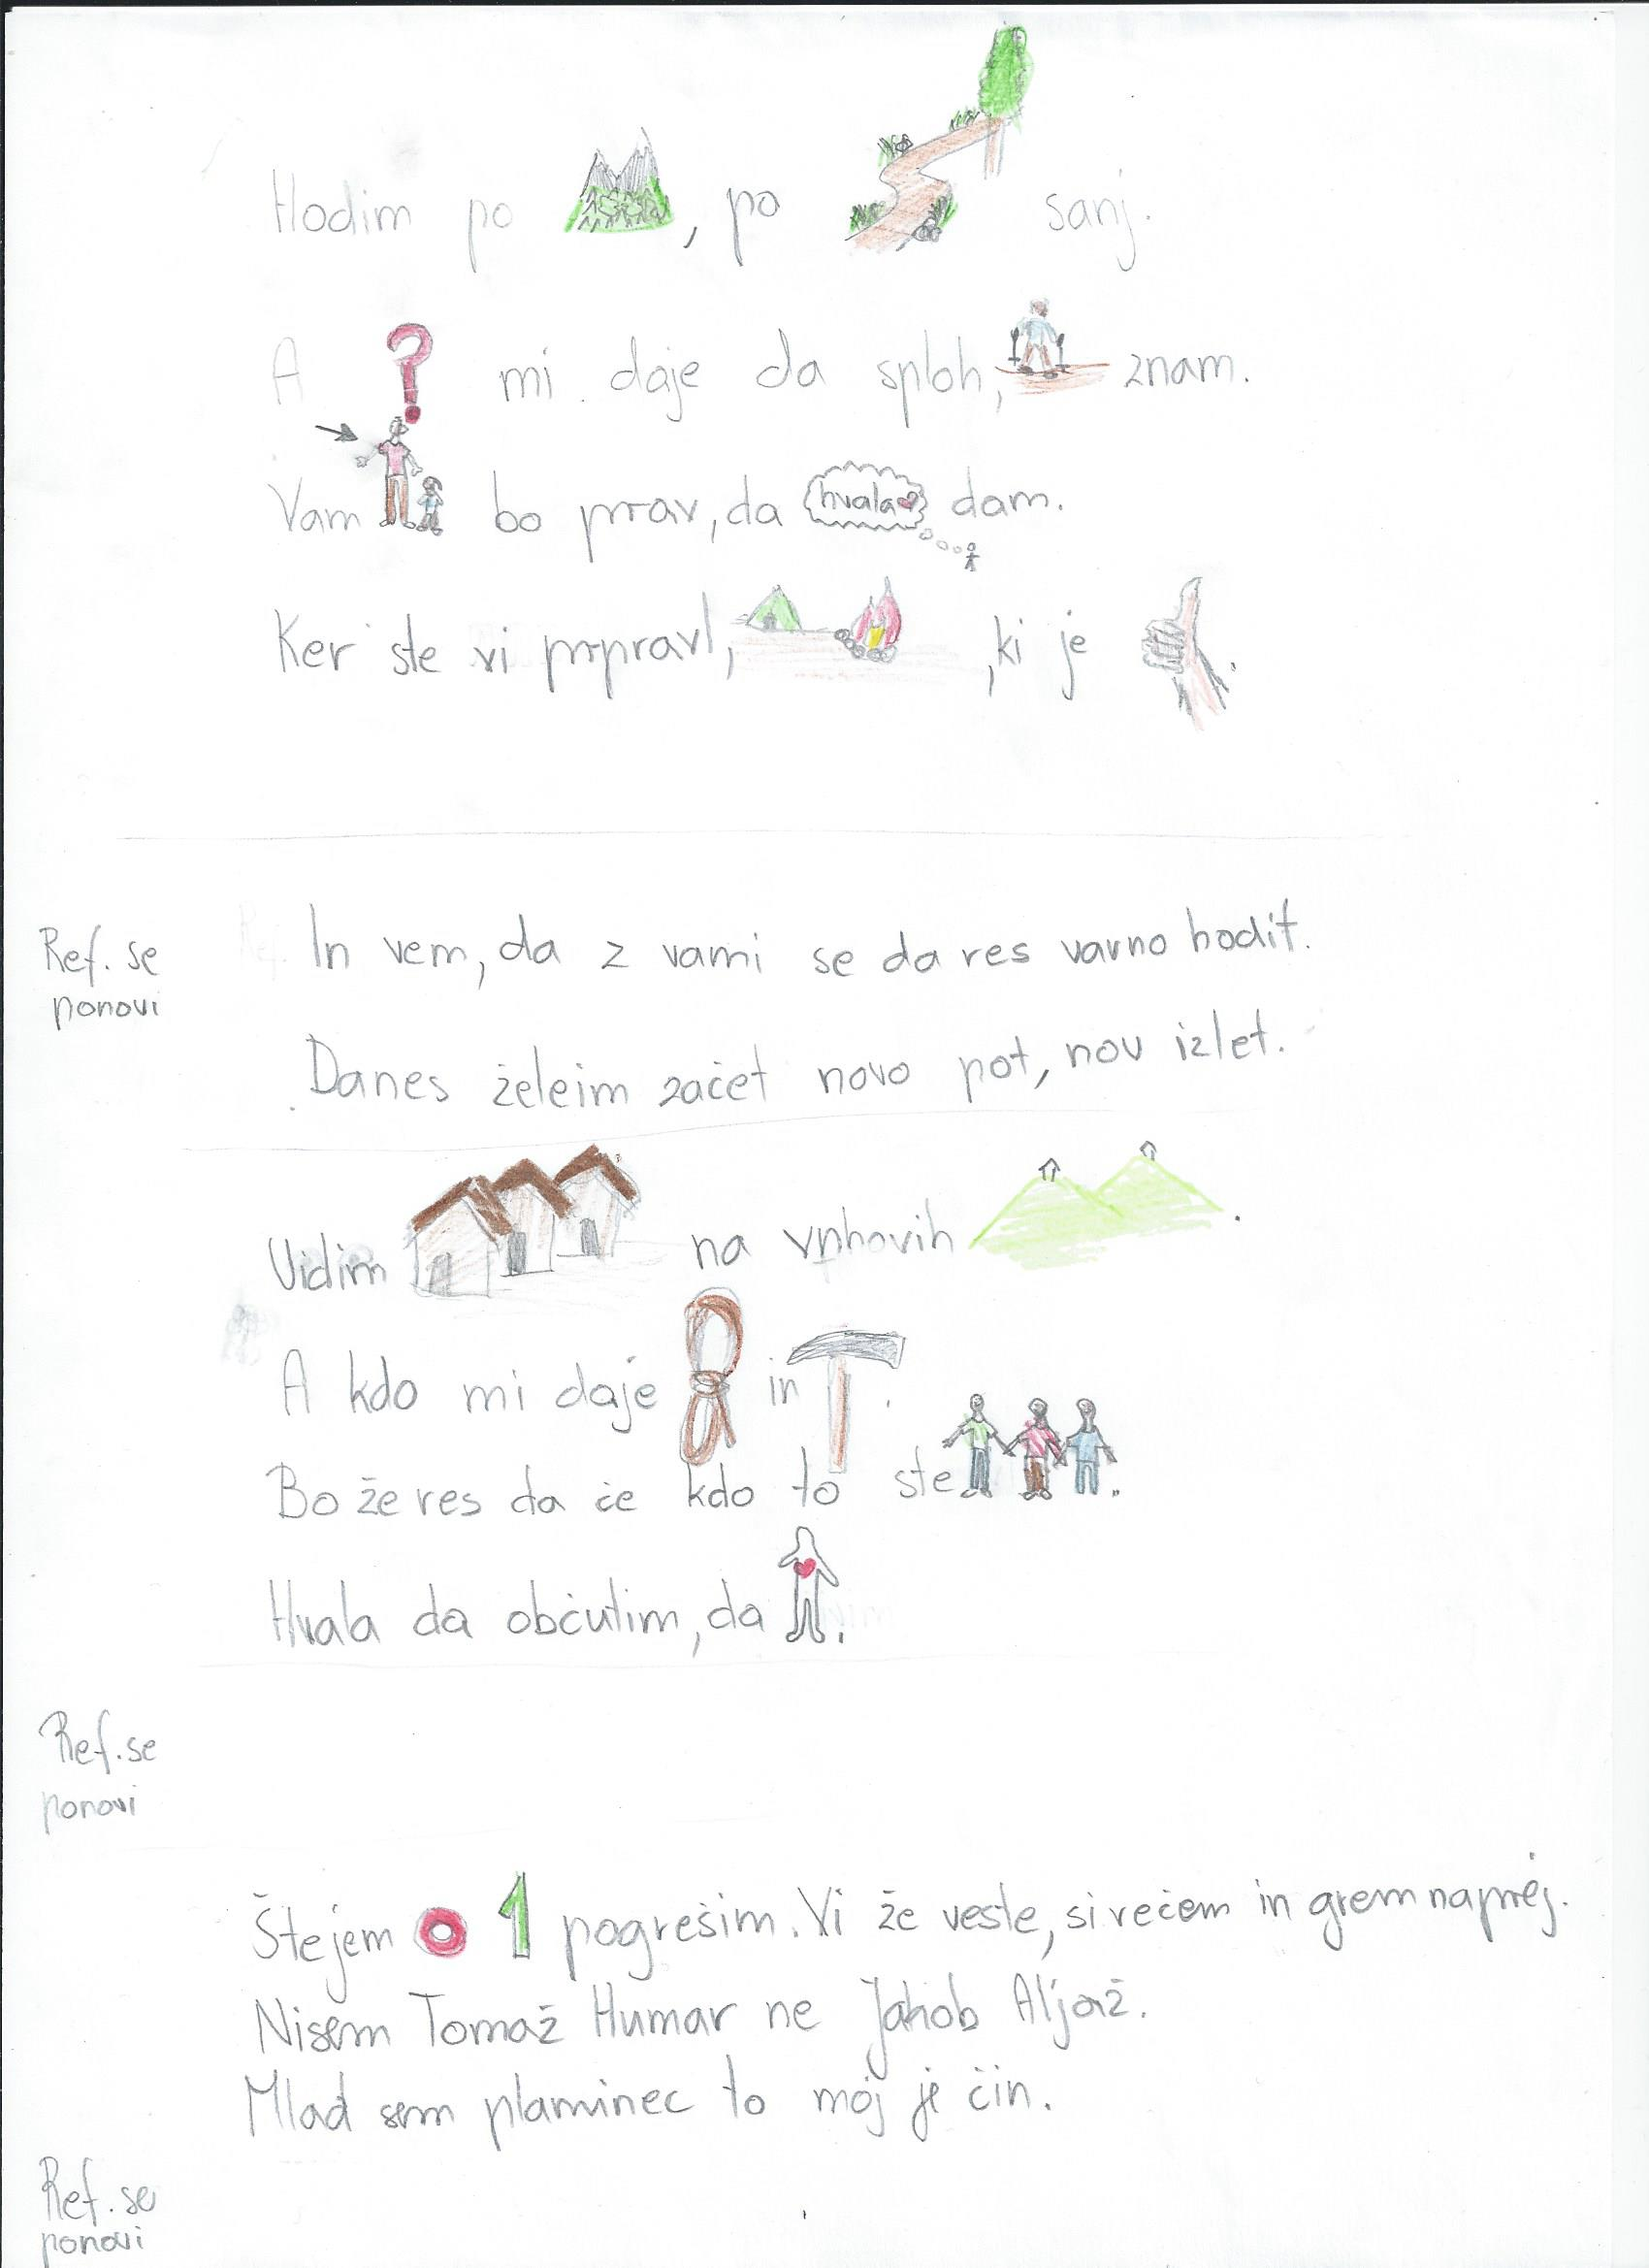 Hodim po , po sanj.
A ? mi daje da sploh, znam.
Vam bo prav, da hvala dam.
Ker ste vi prpravl, , ki je .
Ref. se
ponovi
In vem, da z vami se da res varno hodit.
Danes želeim začet novo pot, nov izlet.
Vidim na vrhovih .
A kdo mi daje in .
Bo že res da če kdo to ste .
Hvala da občutim, da .
Ref. se
ponovi
Štejem 0 1 pogrešim. Vi že veste, si rečem in grem naprej.
Nisem Tomaž Humar ne Jakob Aljaž.
Mlad sem planinec to moj je čin.
Ref. se
ponovi